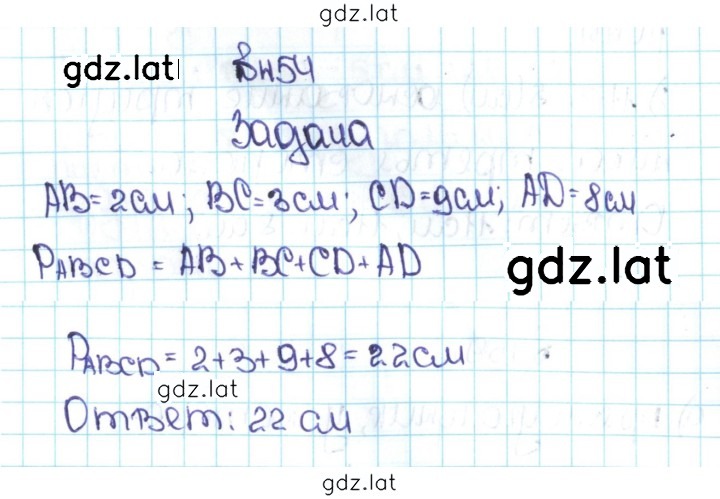 gdz.lat
gdz.lat
Вн54
Задача
AB=2см; BC=3см; CD=9см; AD=8см
PABCD = AB+BC+CD+AD
gdz.lat
PABCD = 2+3+9+8=22см
gdz.lat
Ответ: 22 см
gdz.lat